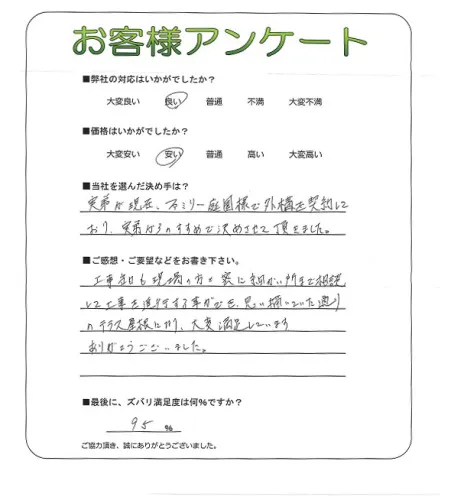 お客様アンケート
■弊社の対応はいかがでしたか？
大変良い 良い 普通 不満 大変不満
■価格はいかがでしたか？
大変安い 安い 普通 高い 大変高い
■当社を選んだ決め手は？
実弟が現在、ファミリー庭園様で外構を契約して
おり、実弟からのすすめで決めさせて頂きました。
■ご感想・ご要望などをお書き下さい。
工事中も現場の方が常に細かい所まで相談
して工事を進行する事ができ、思い描いていた通り
のテラス屋根になり、大変満足しています
ありがとうございました。
■最後に、ズバリ満足度は何%ですか？
95 %
ご協力頂き、誠にありがとうございました。